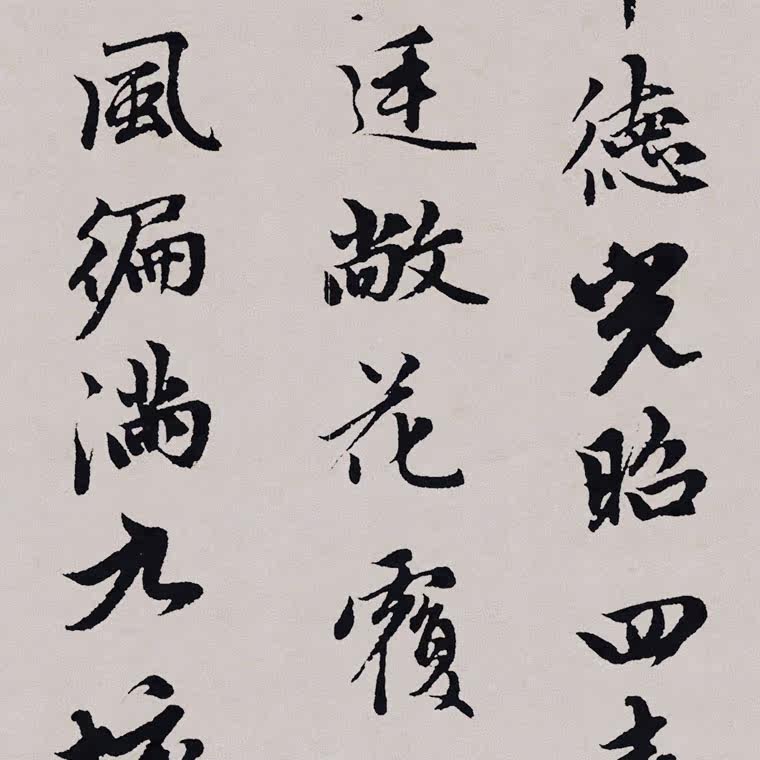 德光昭四
廷敞花覆
風徧滿九